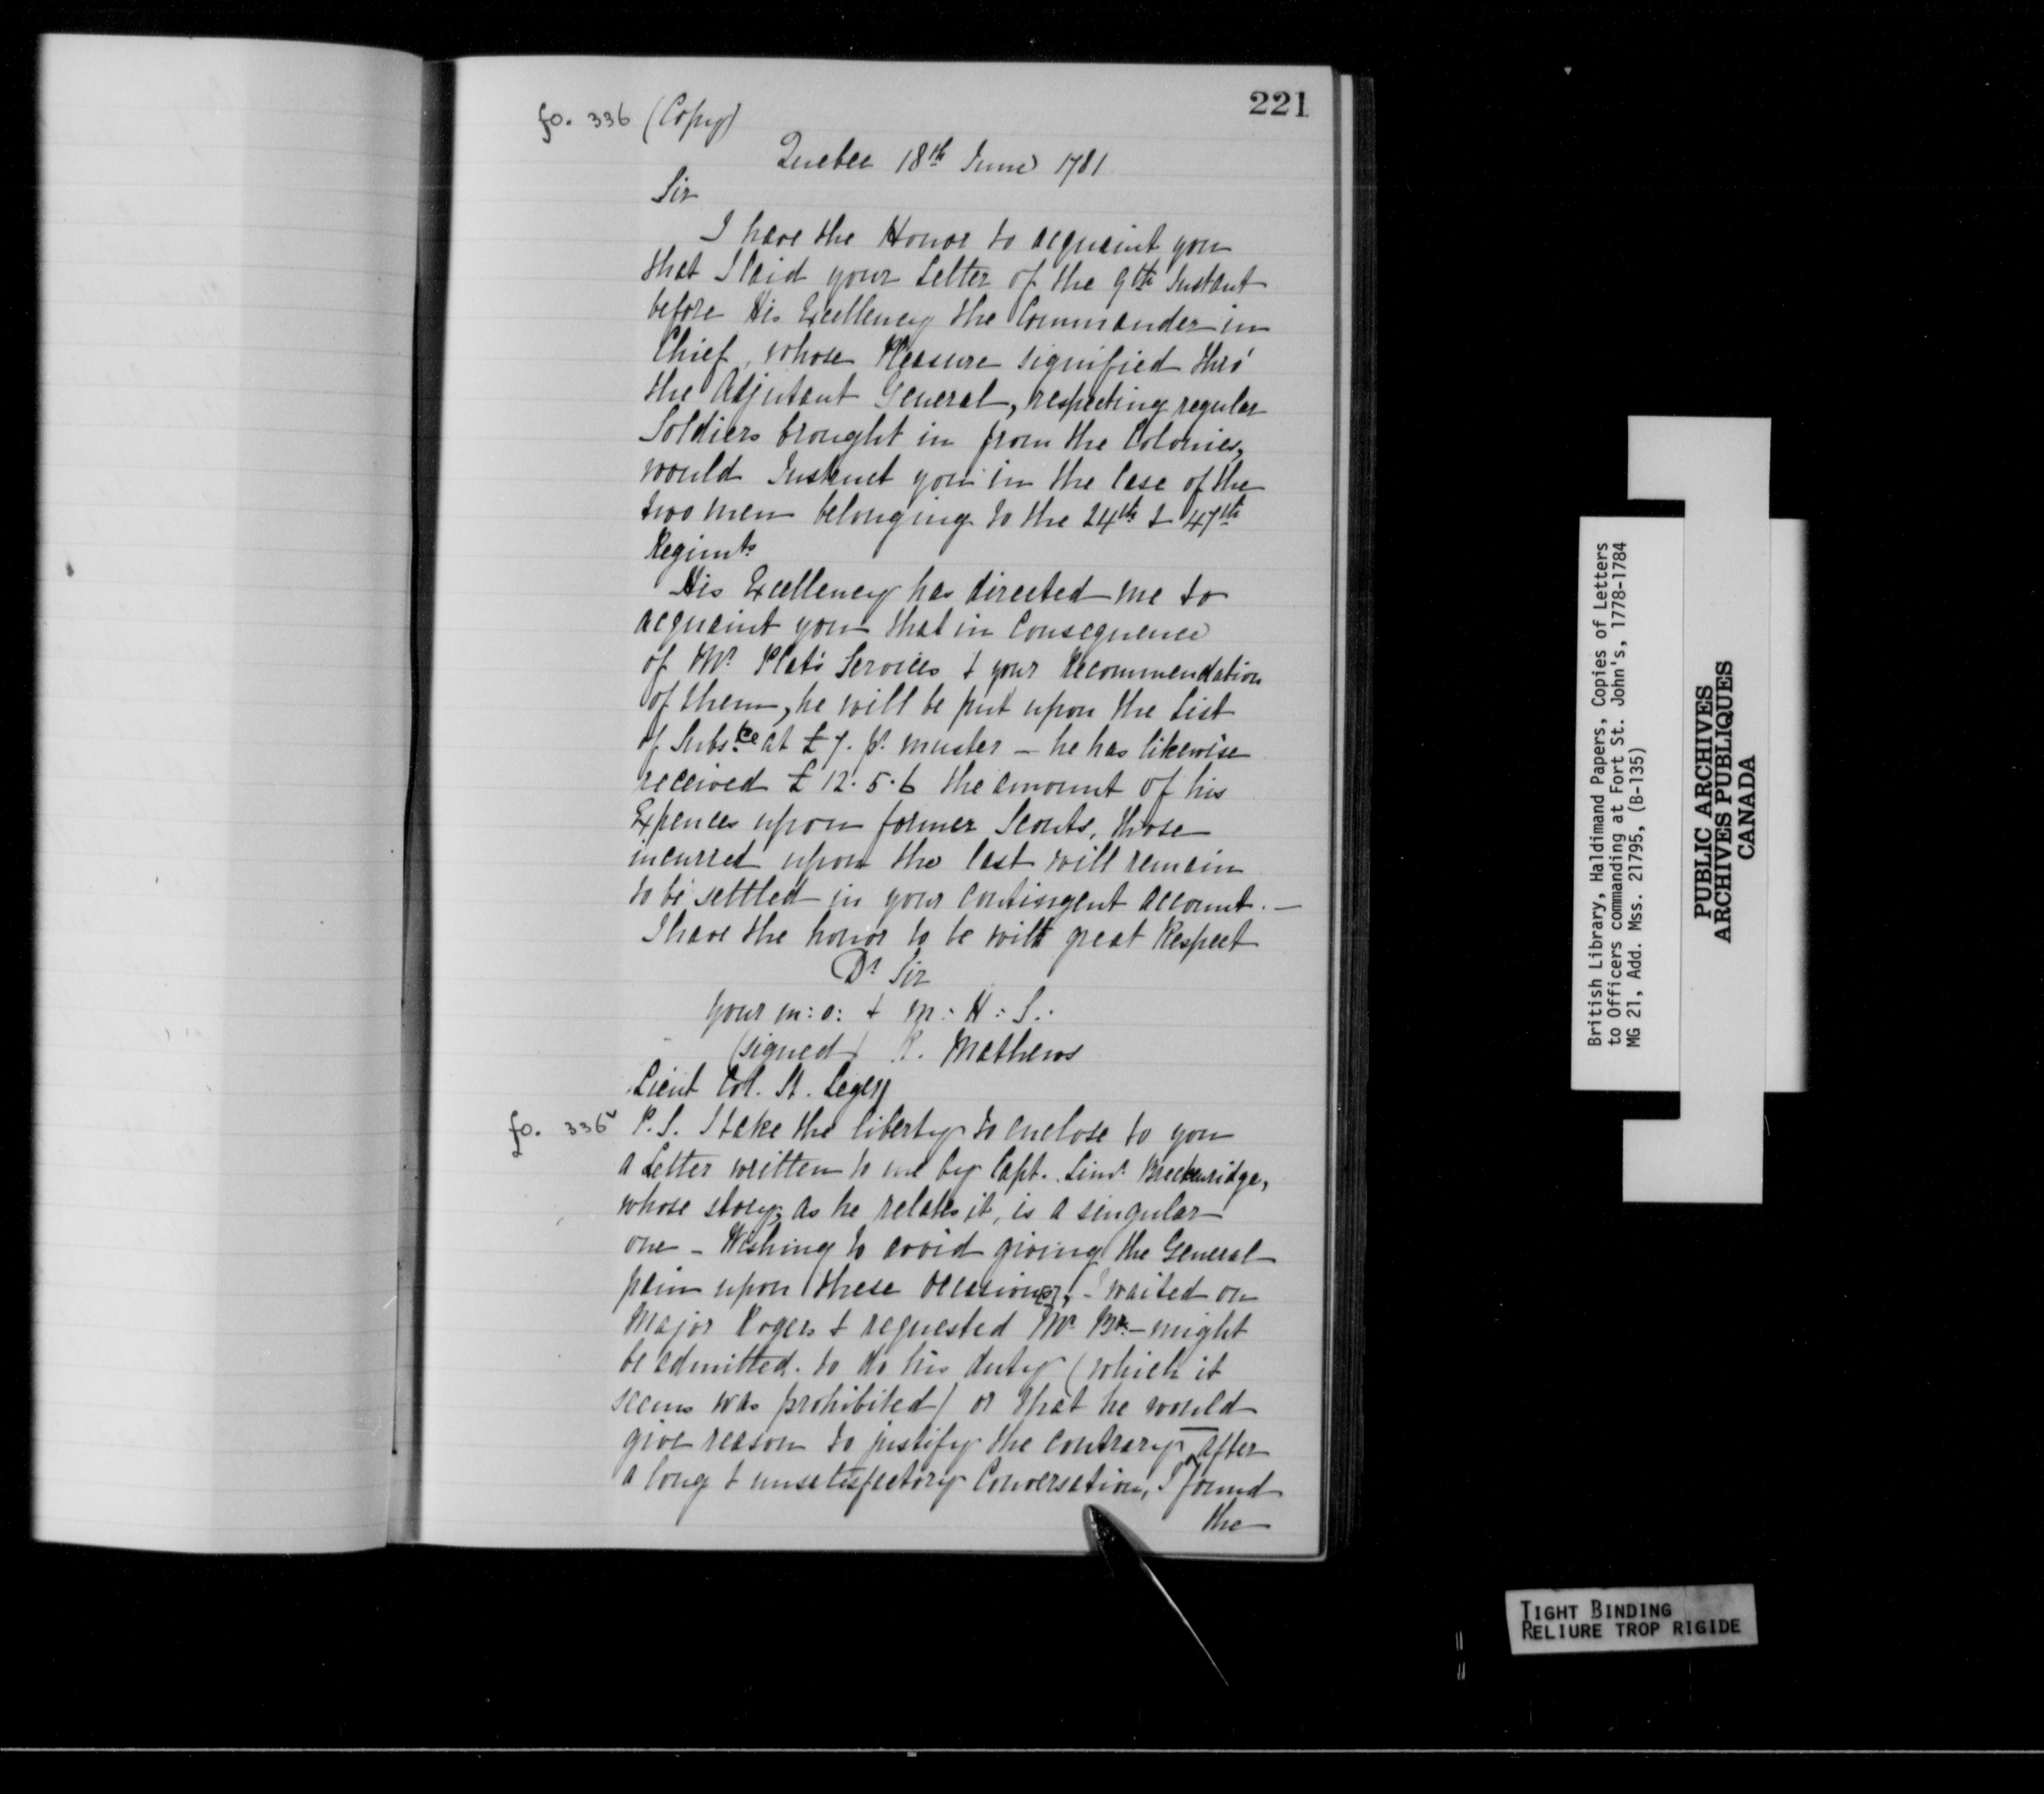 221
fo. 336 (Copy)
Quebec 18th June 1781
Sir
I have the Honor to acquaint you
that I laid your Letter of the 9th Instant
before His Excellency the Commander in
Chief, whose Pleasure signified thro'
the Adjutant General, respecting regular
Soldiers brought in from the Colonies,
would Instruct you in the Case of the
two men belonging to the 24th & 47th
Regimts
His Excellency has directed me to
acquaint you that in Consequence
of Mr Plats Services & your Recommendation
of them, he will be put upon the List
of Subs.ce at £7. pr. muster – he has likewise
received £12.5.6 the amount of his
Expences upon former Scouts, those
incurred upon the last will remain
to be settled in your contingent account. —
I have the honor to be with great Respect
Dr Sir
your m: o: & m: H: S:
(signed) R. Mathews
Lieut Col. St. Leger
fo. 336v P.S. I take the liberty to enclose to you
a Letter written to me by Capt. Lieut. Breckenridge,
whose story, as he relates it, is a singular
one – Wishing to avoid giving the General
pain upon these occasion[s], I waited on
Major Rogers & requested Mr Br.– might
be admitted to do his duty (which it
seems was prohibited) or that he would
give reason to justify the contrary – after
a long & unsatisfactory Conversation, I found
the
British Library, Haldimand Papers, Copies of Letters
to Officers commanding at Fort St. John's, 1778-1784
MG 21, Add. Mss. 21795, (B-135)
PUBLIC ARCHIVES
ARCHIVES PUBLIQUES
CANADA
TIGHT BINDING
RELIURE TROP RIGIDE